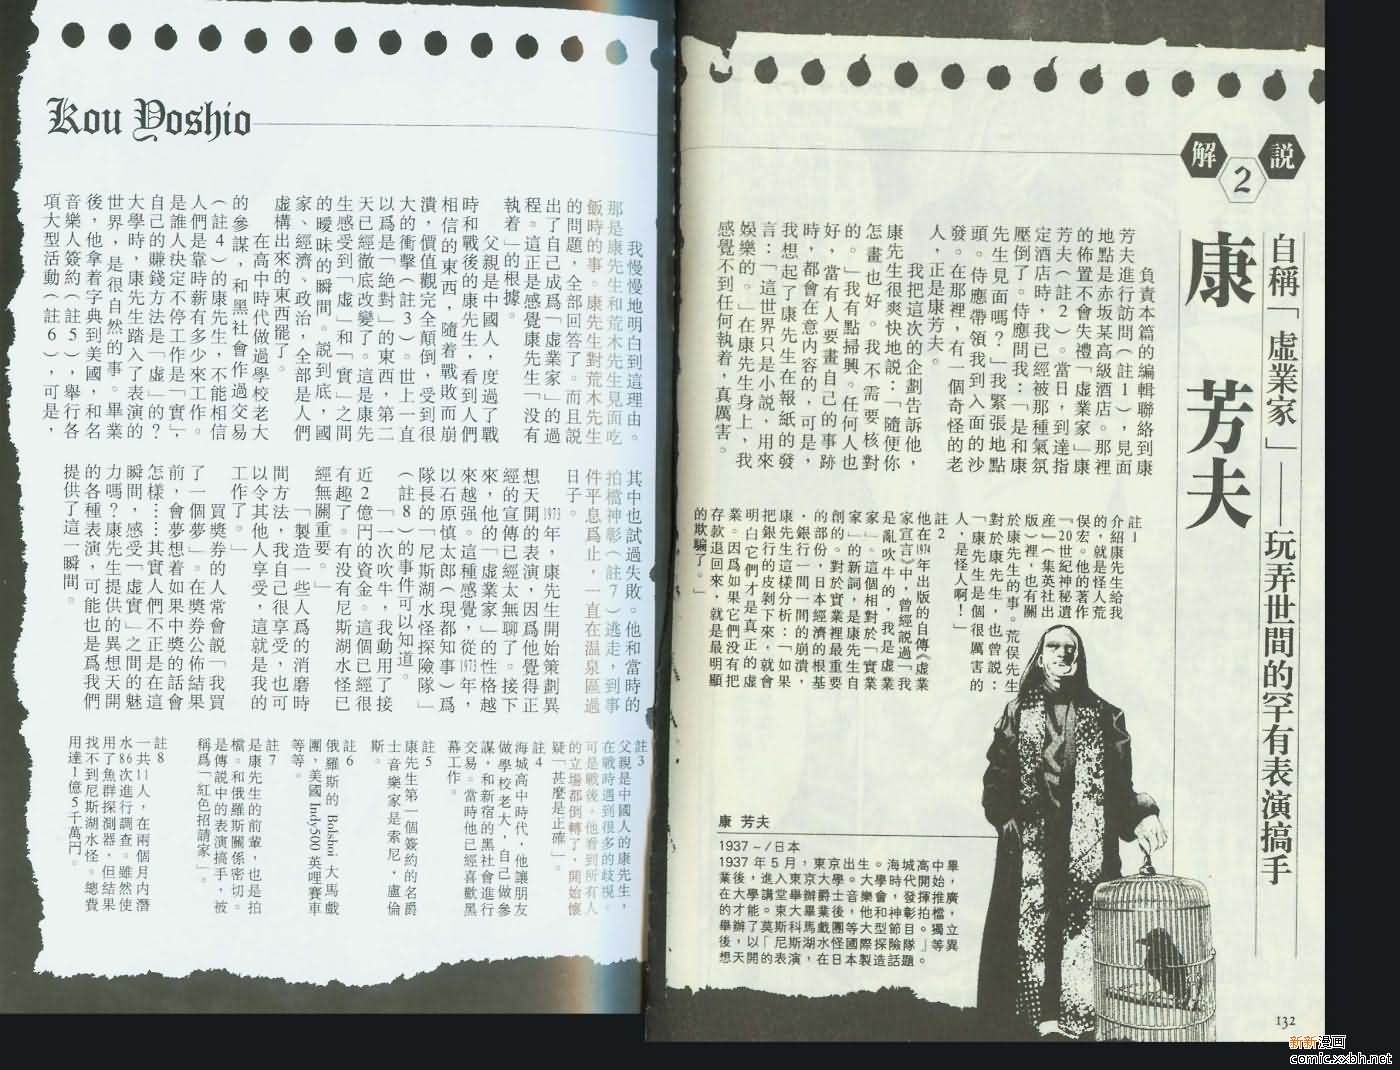 解
2
説
自稱「虛業家」——玩弄世間的罕有表演搞手
康 芳夫
負責本篇的編輯聯絡到康
芳夫進行訪問（註1），見面
地點是赤坂某高級酒店。那裡
的佈置不會失禮「虛業家」康
芳夫（註2）。當日，到達指
定酒店時，我已經被那種氣氛
壓倒了。侍應問我：「是和康
先生見面嗎？」我緊張地點
頭。侍應帶領我到入面的沙
發。在那裡，有一個奇怪的老
人，正是康芳夫。
我把這次的企劃告訴他，
康先生很爽快地說：「隨便你
怎畫也好。我不需要核對
的。」我有點掃興。任何人也
好，當有人要畫自己的事跡
時，都會在意內容的，可是，
我想起了康先生在報紙的發
言：「這世界只是小説，用來
娛樂的。」在康先生身上，我
感覺不到任何執着，真厲害。
註1
介紹康先生給我
的，就是怪人荒
俣宏。他的著作
『20世紀神秘遺
産』（集英社出
版）裡，也有關
於康先生的事。荒俣先生
對於康先生，也曾説：
「康先生是個很厲害的
人，是怪人啊！」
註2
他在1974年出版的自傳《虛業
家宣言》中，曾經說過「我
是亂吹牛的，我是虛業
家」。這個相對於「實業
家」的新詞，是康先生自
創的。對於實業裡最重要
的部份，日本經濟的根基
．銀行一間一間的崩潰，
康先生這樣分析：「如果
把銀行的皮剝下來，就會
明白它們才是真正的虛
業。因爲如果它們没有把
存款退回來，就是最明顯
的欺騙了。」
康 芳夫
1937～/日本
1937年5月，東京出生。海城高中畢
業後，進入東京大學。學生時代開始，
在大學講堂舉辦爵士音樂會，發揮推廣
才能。莫斯科大馬戲團和神彰拍檔，
舉辦了「莫斯科大馬戲團」等大型節目。獨立
後，以尼斯湖水怪國際探險隊等異
想天開的表演，在日本製造話題。
132
Kou Yoshio
我慢慢地明白到這理由。
那是康先生和荒木先生見面吃
飯時的事。康先生對荒木先生
的問題，全部回答了。而且説
出了自己成爲「虛業家」的過
程。這正是感覺康先生「没有
執着」的根據。
父親是中國人，度過了戰
時和戰後的康先生，看到人們
相信的東西，隨着戰敗而崩
潰，價值觀完全顛倒，受到很
大的衝擊（註3）。世上一直
以爲是「絶對」的東西，第二
天已經徹底改變了。這是康先
生感受到「虛」和「實」之間
的曖昧的瞬間。説到底，國
家、經濟、政治，全部是人們
虛構出來的東西罷了。
在高中時代做過學校老大
的參謀，和黑社會作過交易
（註4）的康先生，不能相信
人們是靠時薪有多少來工作。
是誰人決定不停工作是「實」，
自己的賺錢方法是「虛」的？
大學時，康先生踏入了表演的
世界，是很自然的事。畢業
後，他拿着字典到美國，和名
音樂人簽約（註5），舉行各
項大型活動（註6），可是，
其中也試過失敗。他和當時的
拍檔神彰（註7）逃走，到事
件平息爲止，一直在温泉區過
日子。
1973年，康先生開始策劃異
想天開的表演，因爲他覺得正
經的宣傳已經太無聊了。接下
來，他的「虛業家」的性格越
來越强。這種感覺，從1973年，
以石原慎太郎（現都知事）爲
隊長的「尼斯湖水怪探險隊」
（註8）的事件可以知道。
「一次吹牛，我動用了接
近2億門的資金。這個已經很
有趣了。有没有尼斯湖水怪已
經無關重要。」
「製造一些人爲的消磨時
間方法，我自己很享受，也可
以令其他人享受，這就是我的
工作了。」
買獎券的人常會説「我買
了一個夢」。在獎券公佈結果
前，會夢想着如果中獎的話會
怎樣……其實人們不正是在這
瞬間，感受「虛實」之間的魅
力嗎？康先生提供的異想天開
的各種表演，可能也是爲我們
提供了這一瞬間。
註3
父親是中國人的康先生，
在戰時遇到很多的歧視。
可是戰後，他看到所有人
的立場都倒轉了，開始懷
疑「甚麼是正確」。
註4
海城高中時代，他讓朋友
做學校老大，自己做參
謀，和新宿的黑社會進行
交易。當時他已經喜歡黑
幕工作。
註5
康先生第一個簽約的名爵
士音樂家是索尼．盧倫
斯。
註6
俄羅斯的Bolshoi大馬戲
團，美國Indy500英哩賽車
等等。
註7
是康先生的前輩，也是拍
檔。和俄羅斯關係密切。
是傳説中的表演搞手，被
稱爲「紅色招請家」。
註8
一共11人，在兩個月内潛
水86次進行調查。雖然使
用了魚群探測器，但結果
找不到尼斯湖水怪。總費
用達1億5千萬円。
新新漫画
comic.xxbh.net